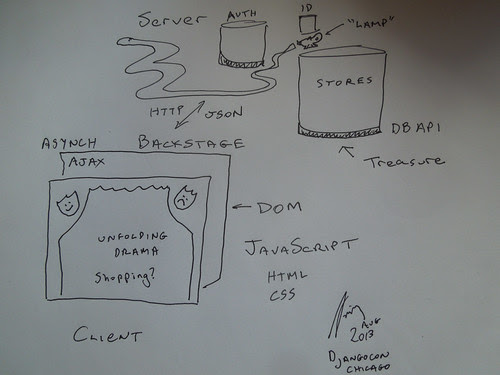 Server
AUTH
ID
"LAMP"
STORES
HTTP
JSON
DB API
Treasure
ASYNCH
BACKSTAGE
AJAX
DOM
UNFOLDING
DRAMA
Shopping?
JAVASCRIPT
HTML
CSS
CLIENT
AUG
2013
DJANGOCON
CHICAGO